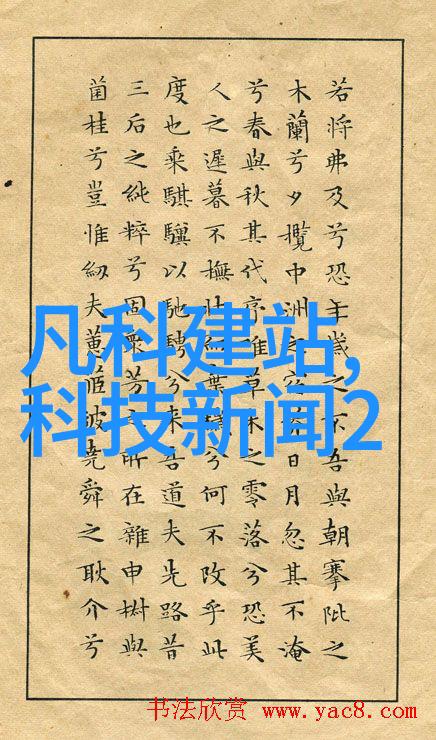 若將弗及兮恐年歲之不吾與朝搴阰之
木蘭兮夕攬中洲之宿莽日月忽其不淹
兮春與秋其代序惟草木之零落兮恐美
人之遲暮不撫壯而棄穢兮何不改乎此
度也乘騏驥以馳騁兮来吾道夫先路昔
三后之純粹兮固衆芳之所在雜申椒與
菌桂兮豈惟紉夫蕙茝彼堯舜之耿介兮
凡科建站,
科技新闻2
书法欣赏 www.yac8.com